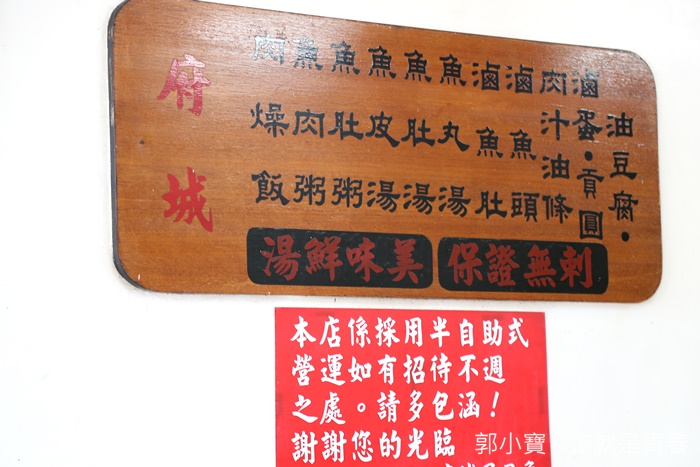 府城
肉燥飯
魚肉粥
魚肚粥
魚皮湯
魚肚湯
魚丸湯
滷魚肚
滷魚頭
肉汁油條
滷蛋・貢圓
油豆腐・
湯鮮味美
保證無刺
本店係採用半自助式
營運如有招待不週
之處。請多包涵!
謝謝您的光臨
郭小寶